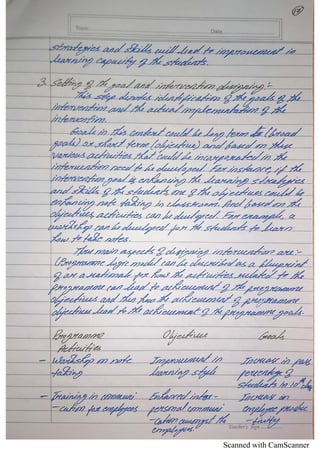 Topic
Date
strategies and skills will lead to improvement in
learning capacity of the students.
3. Setting of the goal and intervention designing :-
This step denotes identification of the goals of the
intervention and the actual implementation of the
intervention.
Goals in this context could be long term (broad
goals) or short term (objective) and based on these
various activities that could be incorporated in the
intervention need to be developed. For instance, if the
intervention goal is enhancing the learning strategies
and skills of the students one of the objectives could be
enhancing note taking in classroom. And based on the
objectives activities can be developed. For example, a
workshop can be developed for the students to learn
how to take notes.
Three main aspects of designing intervention are :-
(Programme logic model can be described as a blueprint
of are a rationale for how the activities related to the
programme can lead to achievement of the programme
objectives and then how the achievement of programme
objectives lead to the achievement of the programme goals.
Programme Objectives Goals
Activities
- Workshop on note Improvement in Increase in pass
taking learning style percentage of
students in 10th
- Training in communi Enhanced inter- Increase in
-cation for employees personal communi employee produc
-cation amongst the -tivity
employees.
Teacher's Sign
Scanned with CamScanner